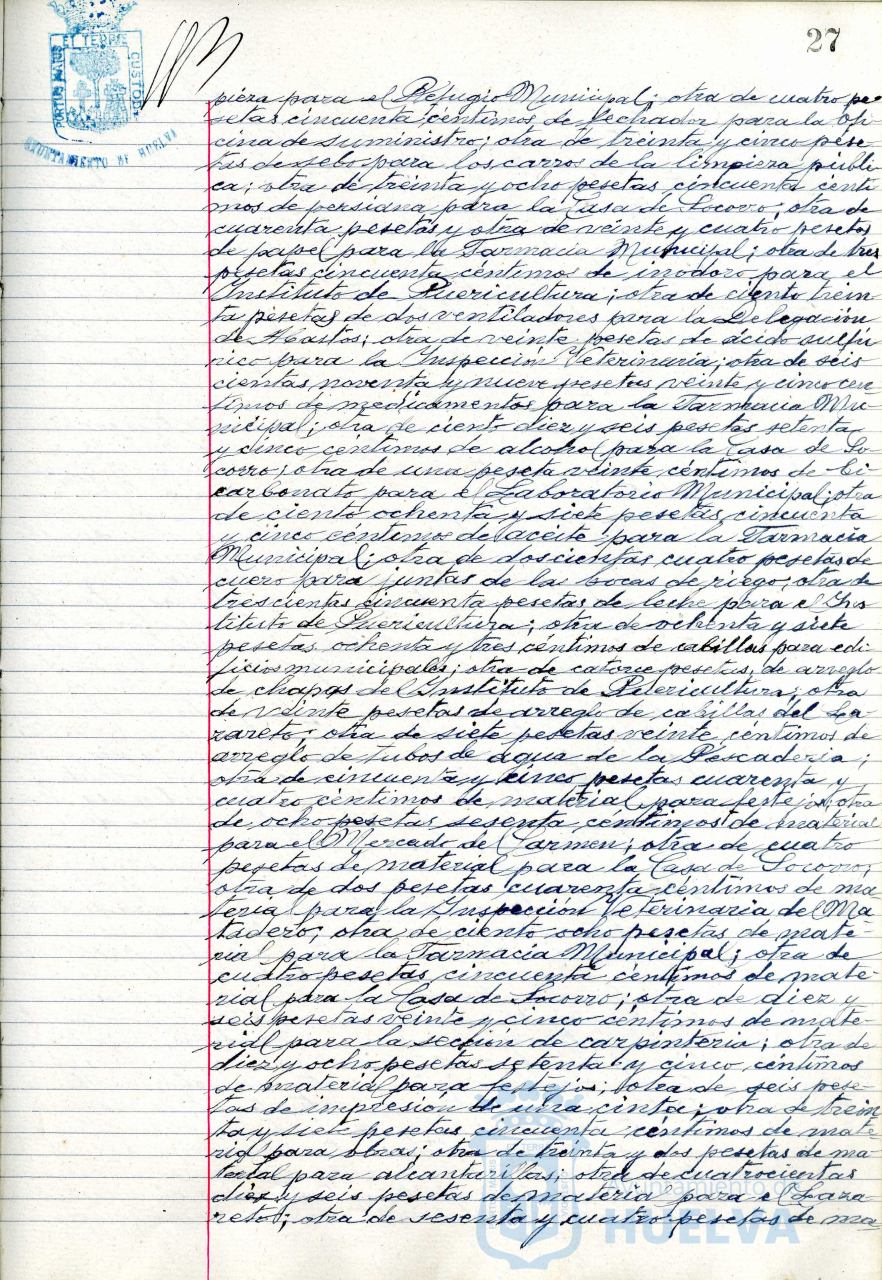 27
PORTUS MARIS
ET TERRE
CUSTODIA
AYUNTAMIENTO DE HUELVA
pieza para el Refugio Municipal; otra de cuatro pe-
setas cincuenta céntimos de lechador para la ofi-
cina de suministro; otra de treinta y cinco pese-
tas de sebo para los carros de la limpieza públi-
ca; otra de treinta y ocho pesetas cincuenta cénti-
mos de persiana para la Casa de Socorro; otra de
cuarenta pesetas y otra de veinte y cuatro pesetas
de papel para la Farmacia Municipal; otra de tres
pesetas cincuenta céntimos de inodoro para el
Instituto de Puericultura; otra de ciento trein-
ta pesetas de dos ventiladores para la Delegación
de Abastos; otra de veinte pesetas de ácido sulfú-
rico para la Inspección Veterinaria; otra de seis
cientas noventa y nueve pesetas veinte y cinco cén-
timos de medicamentos para la Farmacia Mu-
nicipal; otra de ciento diez y seis pesetas setenta
y cinco céntimos de alcohol para la Casa de So-
corro; otra de una peseta veinte céntimos de bi-
carbonato para el Laboratorio Municipal; otra
de ciento ochenta y siete pesetas cincuenta
y cinco céntimos de aceite para la Farmacia
Municipal; otra de doscientas cuatro pesetas de
cuero para juntas de las bocas de riego; otra de
trescientas cincuenta pesetas de leche para el Ins-
tituto de Puericultura; otra de ochenta y siete
pesetas ochenta y tres céntimos de cabillas para edi-
ficios municipales; otra de catorce pesetas, de arreglo
de chapas del Instituto de Puericultura; otra
de veinte pesetas de arreglo de cabillas del La-
zareto; otra de siete pesetas veinte céntimos de
arreglo de tubos de agua de la Pescadería;
otra de cincuenta y cinco pesetas cuarenta y
cuatro céntimos de material para festejos; otra
de ocho pesetas sesenta céntimos de material
para el Mercado de Carmen; otra de cuatro
pesetas de material para la Casa de Socorro;
otra de dos pesetas cuarenta céntimos de ma-
terial para la Inspección Veterinaria del Ma-
tadero; otra de ciento ocho pesetas de mate-
rial para la Farmacia Municipal; otra de
cuatro pesetas cincuenta céntimos de mate-
rial para la Casa de Socorro; otra de diez y
seis pesetas veinte y cinco céntimos de mate-
rial para la sección de carpintería; otra de
diez y ocho pesetas setenta y cinco céntimos
de material para festejos; otra de seis pese-
tas de impresión de una cinta; otra de trein
ta y siete pesetas cincuenta céntimos de mate
rial para obras; otra de treinta y dos pesetas de ma-
terial para alcantarillas; otra de cuatrocientas
diez y seis pesetas de material para el Laza-
reto; otra de sesenta y cuatro pesetas de ma
Ayuntamiento de
HUELVA